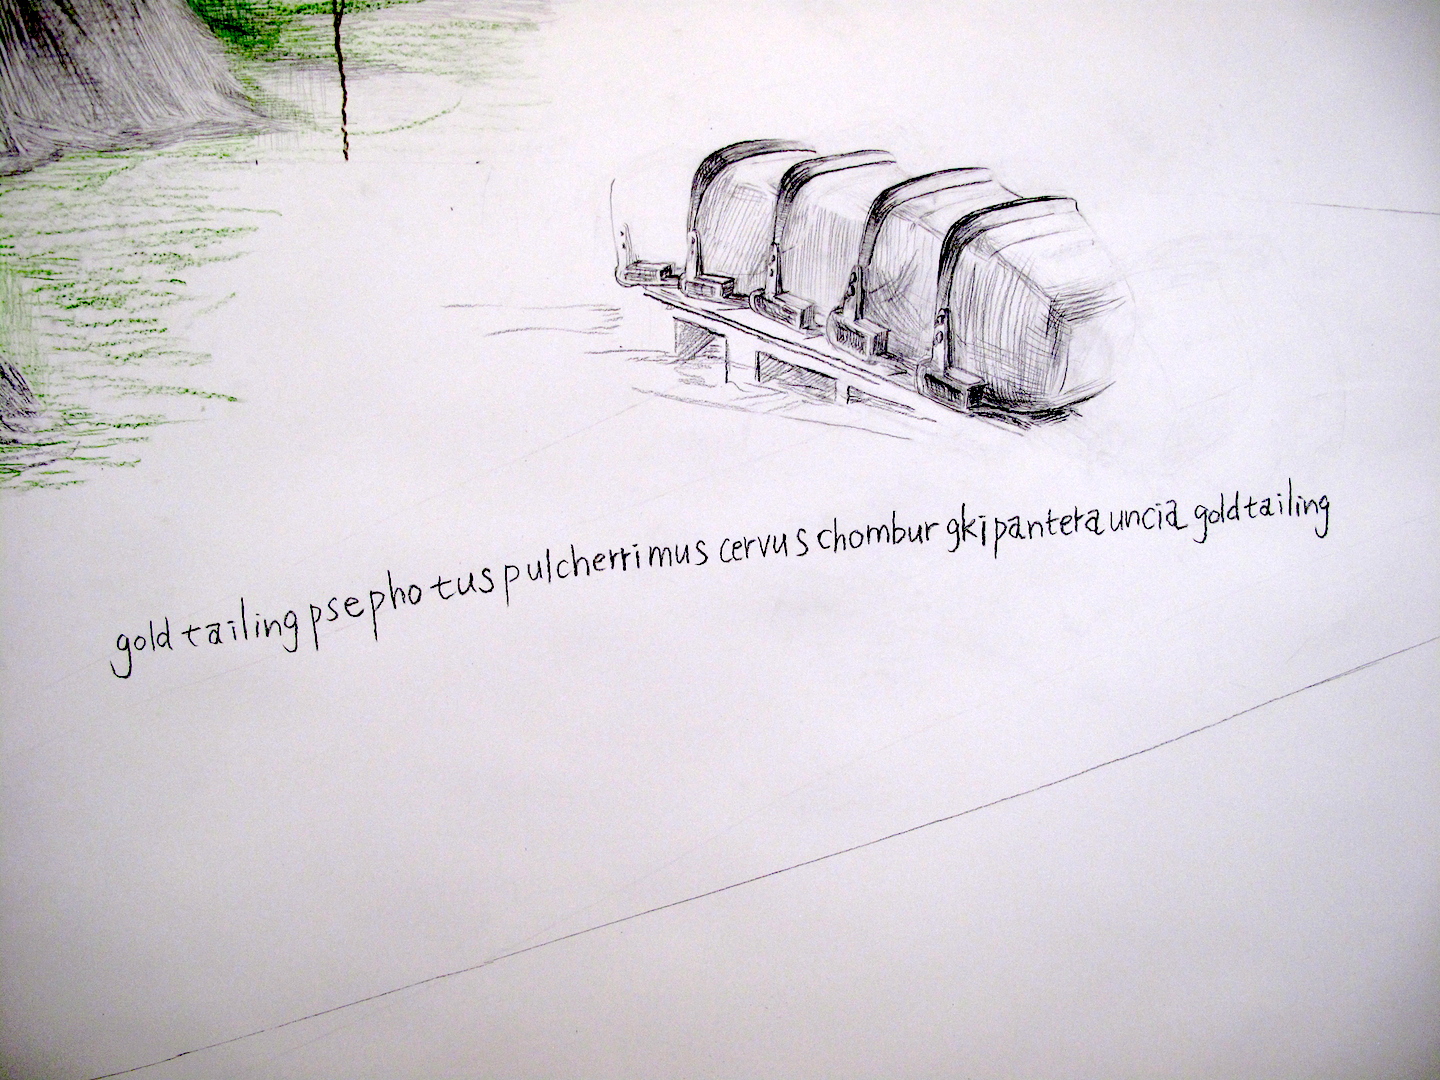 gold tailing psephotus pulcherrimus cervus chomburgki pantera uncia goldtailing